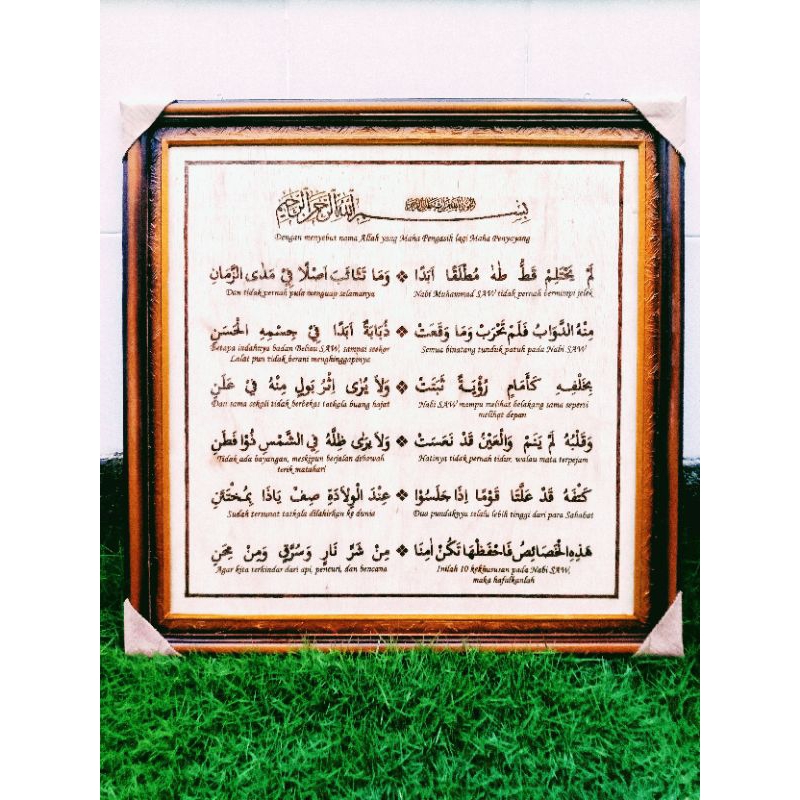 بِسْمِ اللَّهِ الرَّحْمَنِ الرَّحِيمِ
Dengan menyebut nama Allah yang Maha Pengasih lagi Maha Penyayang
لَمْ يَحْتَلِمْ قَطُّ طٰهٰ مُطْلَقًا اَبَدًا ❖ وَمَا تَثَائَبَ اَصْلًا فِيْ مَدَى الزَّمَانِ
Nabi Muhammad SAW tidak pernah bermimpi jelek
Dan tidak pernah pula menguap selamanya
مِنْهُ الدَّوَابُ فَلَمْ تَهْرَبْ وَمَا وَقَعَتْ ❖ ذُبَابَةٌ اَبَدًا فِيْ جِسْمِهِ الْحَسَنِ
Semua binatang tunduk patuh pada Nabi SAW
Betapa indahnya badan Beliau SAW, sampai seekor
Lalat pun tidak berani menghinggapinya
بِخَلْفِهِ كَأَمَامٍ رُؤْيَةٌ ثَبَتَتْ ❖ وَلاَ يُرٰى اِثْرُ بَوْلٍ مِنْهُ فِيْ عَلَنِ
Nabi SAW mampu melihat belakang sama seperti
melihat depan
Dan sama sekali tidak berbekas tatkala buang hajat
وَقَلْبُهُ لَمْ يَنَمْ وَالْعَيْنُ قَدْ نَعَسَتْ ❖ وَلاَ يَرٰى ظِلَّهُ فِي الشَّمْسِ ذُوْا فَطَنِ
Hatinya tidak pernah tidur, walau mata terpejam
Tidak ada bayangan, meskipun berjalan dibawah
terik matahari
كَتْفَهُ قَدْ عَلَتَا قَوْمًا اِذَا جَلَسُوْا ❖ عِنْدَ الْوِلاَدَةِ صِفْ يَاذَا بِمُخْتَتَنِ
Dua pundaknya selalu lebih tinggi dari para Sahabat
Sudah tersunat tatkala dilahirkan ke dunia
هَذِهِ الْخَصَائِصُ فَاحْفَظْهَا تَكُنْ اٰمِنًا ❖ مِنْ شَرِّ نَارٍ وَسُرَّقٍ وَمِنْ مِحَنِ
Inilah 10 kekhususan pada Nabi SAW,
maka hafalkanlah
Agar kita terhindar dari api, pencuri, dan bencana